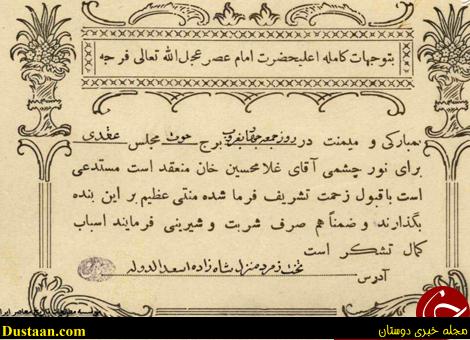 بتوجهات کامله اعلیحضرت امام عصر عجل الله تعالی فرجه
بمبارکی و میمنت در روز جمعه برج حوت مجلس عقدی
برای نور چشمی آقای غلامحسین خان منعقد است مستدعی
است با قبول زحمت تشریف فرما شده منتی عظیم بر این بنده
بگذارند و ضمناً هم صرف شربت و شیرینی فرمایند اسباب
کمال تشکر است
آدرس تخت زمرد منزل شاه زاده اسعد الدوله
مجله خبری دوستان
Dustaan.com